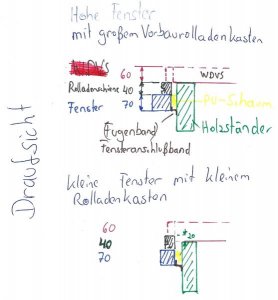 Hohe Fenster
mit großem Vorbaurolladenkasten
60
WDVS
Rolladenschiene 40
Fenster 70
PU-Schaum
Holzständer
Fugenband
Fensteranschlußband
Draufsicht
kleine Fenster mit kleinem
Rolladenkasten
60
40
70
20